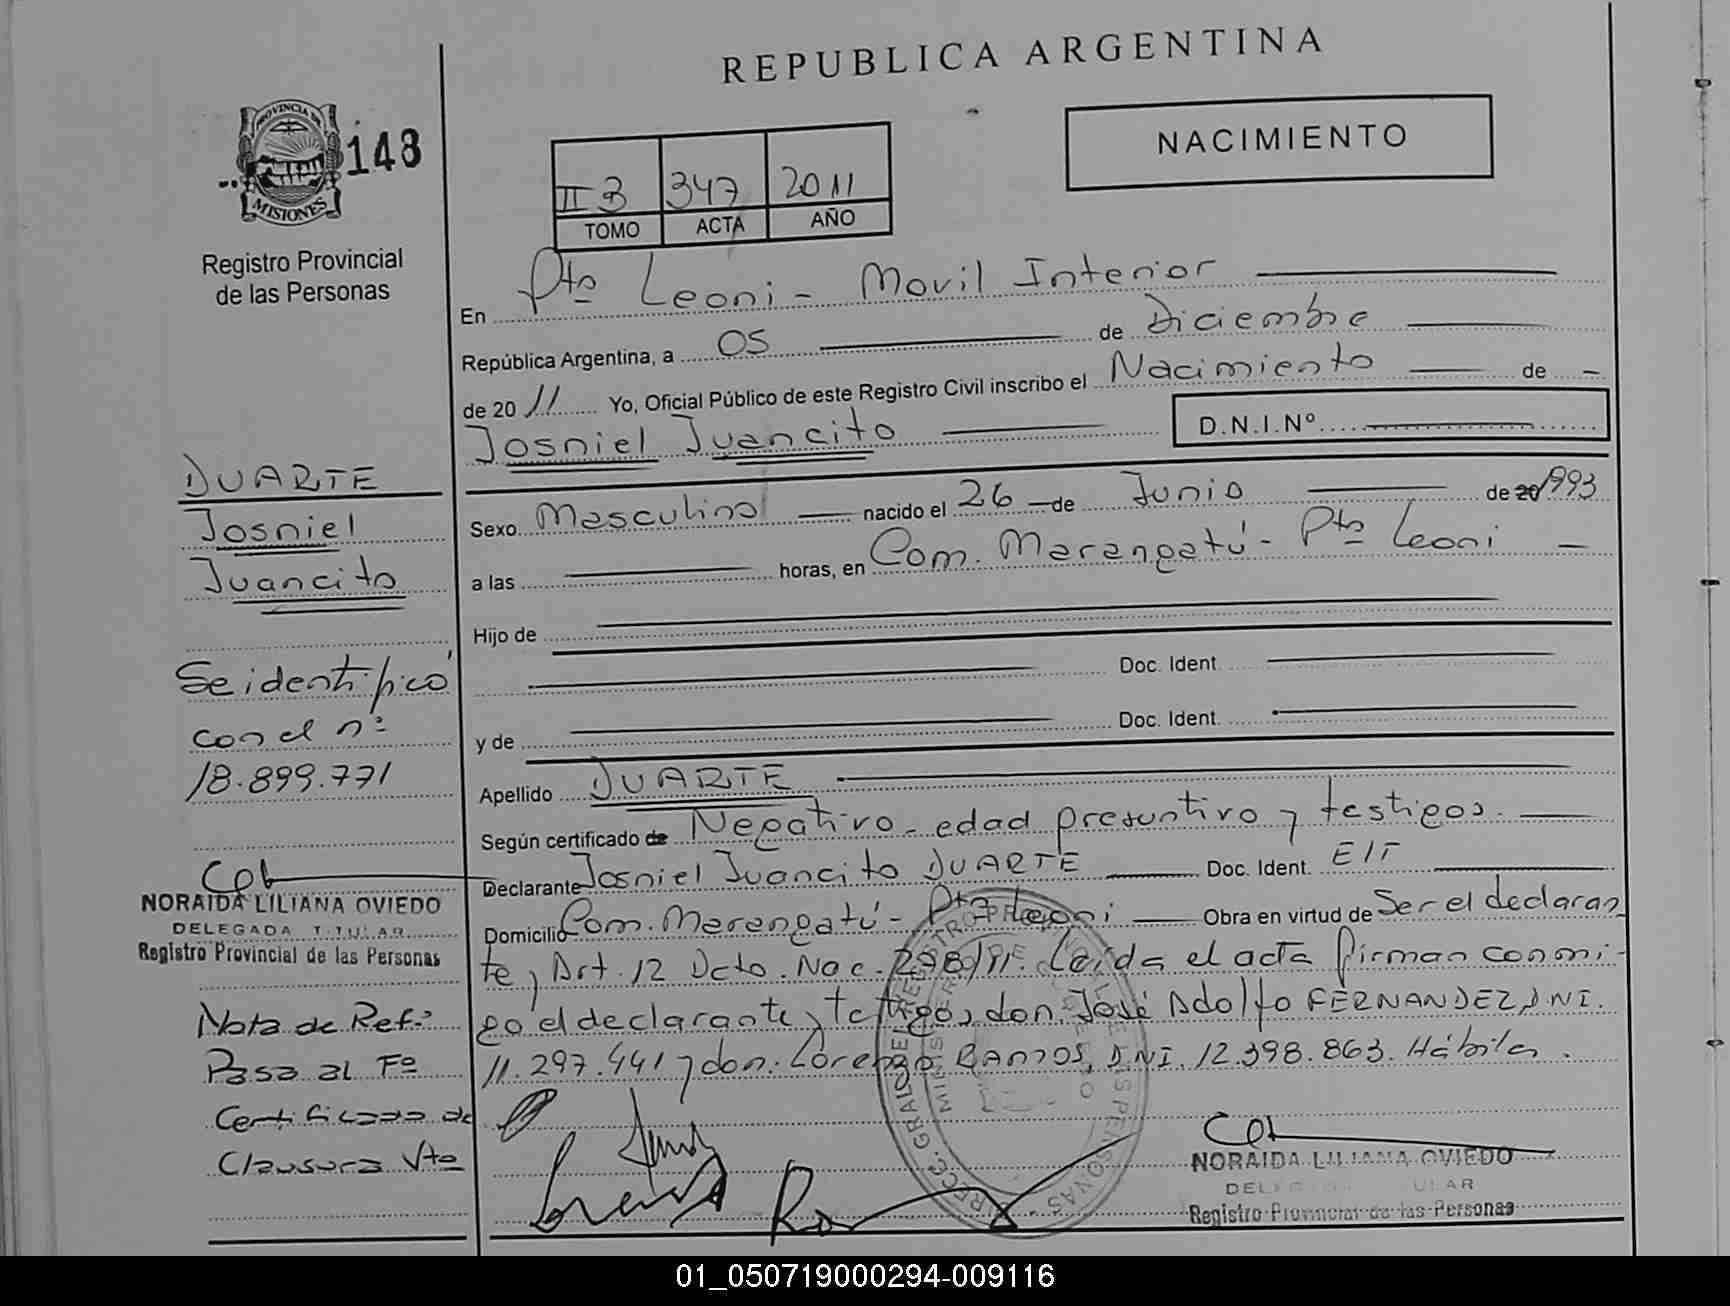 REPUBLICA ARGENTINA
NACIMIENTO
PROVINCIA DE
MISIONES
148
Registro Provincial
de las Personas
II 3 347 2011
TOMO ACTA AÑO
En Pto Leoni - Movil Interior
República Argentina, a 05 de Diciembre
de 2011 Yo, Oficial Público de este Registro Civil inscribo el Nacimiento de
Josniel Juancito D.N.I.Nº
Sexo Masculino nacido el 26 de Junio de 20 1993
a las horas, en Com. Marangatú - Pto Leoni
Hijo de
Doc. Ident.
y de Doc. Ident.
Apellido DUARTE
Según certificado de Negativo - edad presuntiva y testigos.
Declarante Josniel Juancito DUARTE Doc. Ident. E/T
Domicilio Com. Marangatú - Pto Leoni Obra en virtud de Ser el declaran
te, Art. 12 Dcto. Nac. 298/91. Leida el acta firman conmi-
go el declarante y testigos, don José Adolfo FERNANDEZ, D.N.I.
11.297.441 y don Lorenzo RAMOS, D.N.I. 12.398.863. Hábiles.
DUARTE
Josniel
Juancito
Se identificó
con el nº
18.899.771
NORAIDA LILIANA OVIEDO
DELEGADA TITULAR
Registro Provincial de las Personas
Nota de Ref:
Pasa al Fº
Certificado de
Clausura Vta
NORAIDA LILIANA OVIEDO
Registro Provincial de las Personas
01_050719000294-009116